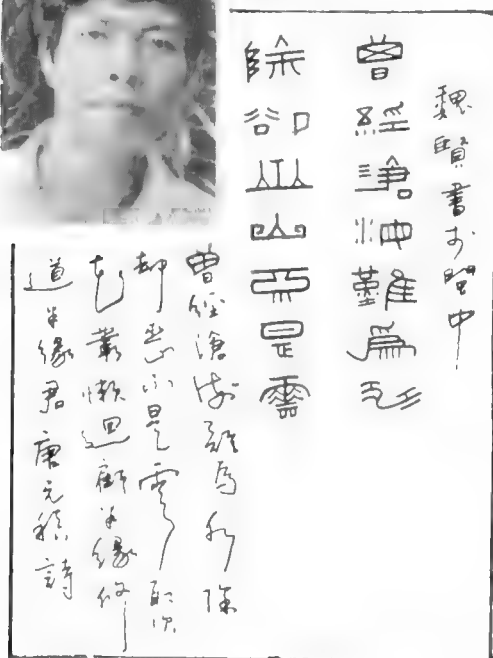 魏賢書於閩中
曾經滄海難為水
除卻巫山不是雲
曾經滄海難為水除
却巫山不是雲取次
花叢懶迴顧半緣修
道半緣君唐元稹詩